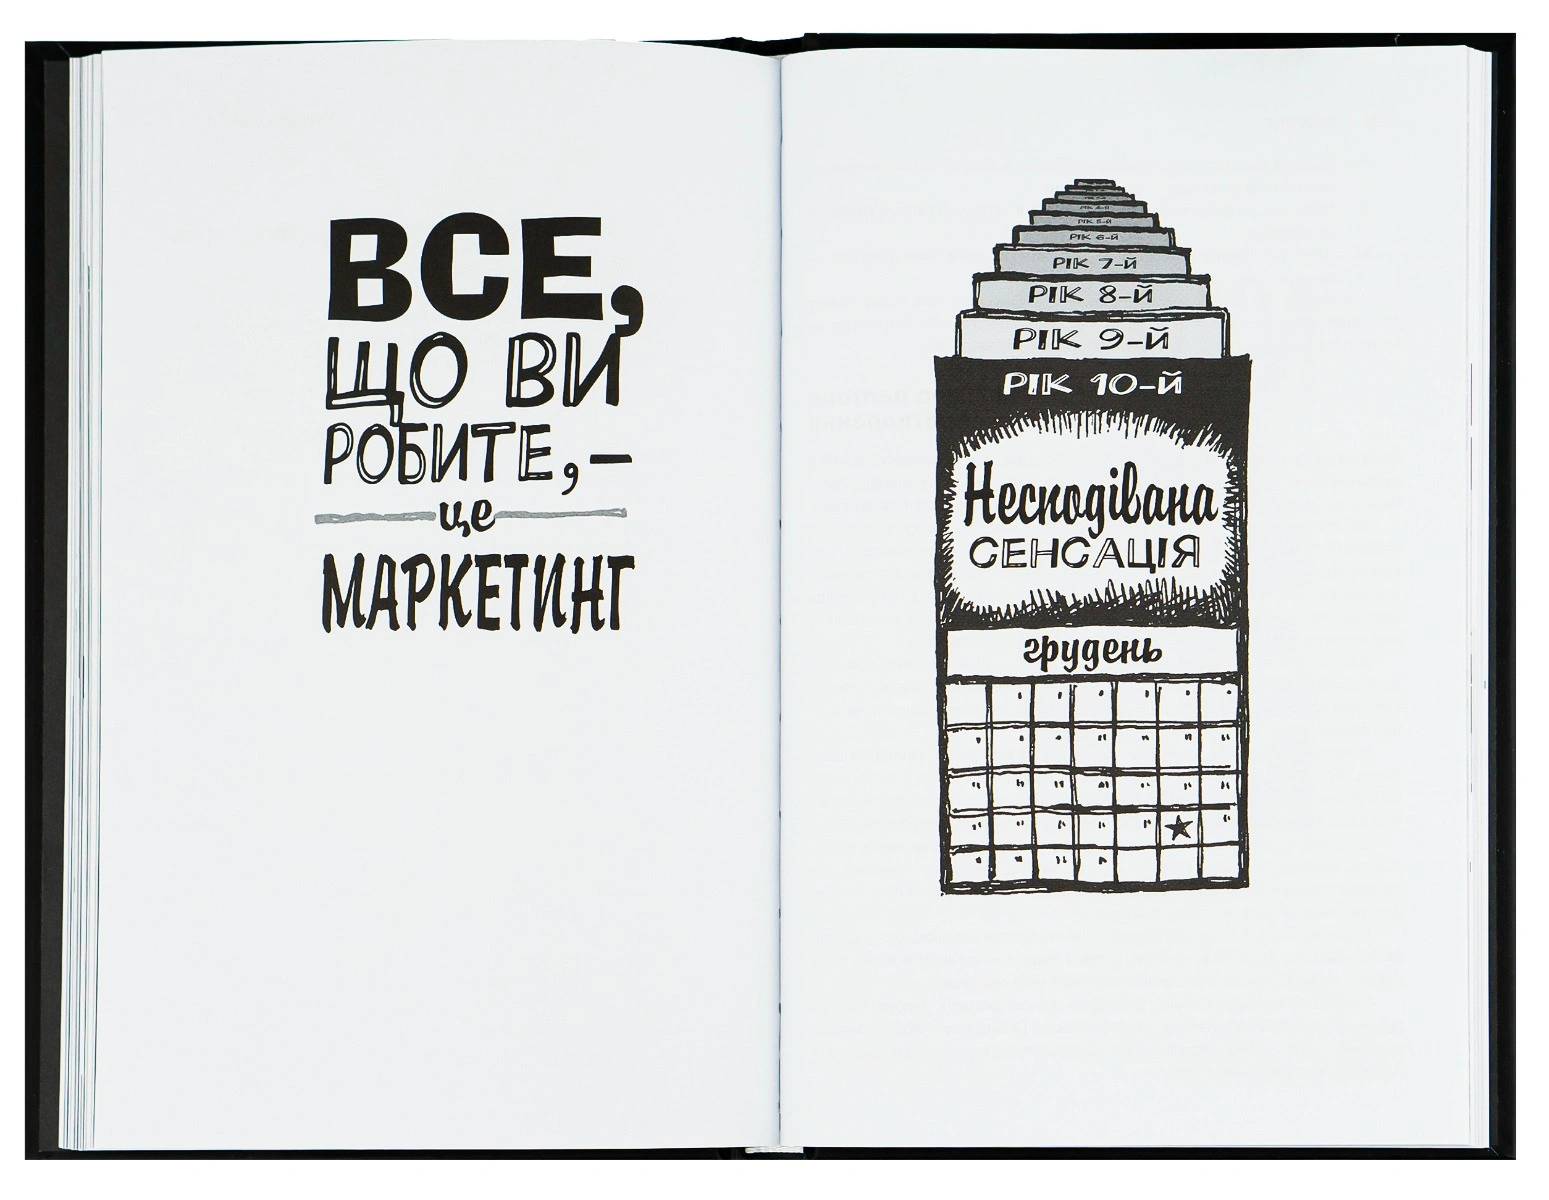 ВСЕ,
ЩО ВИ
РОБИТЕ, –
це
МАРКЕТИНГ
РІК 6-Й
РІК 7-Й
РІК 8-Й
РІК 9-Й
РІК 10-Й
Несподівана
СЕНСАЦІЯ
грудень